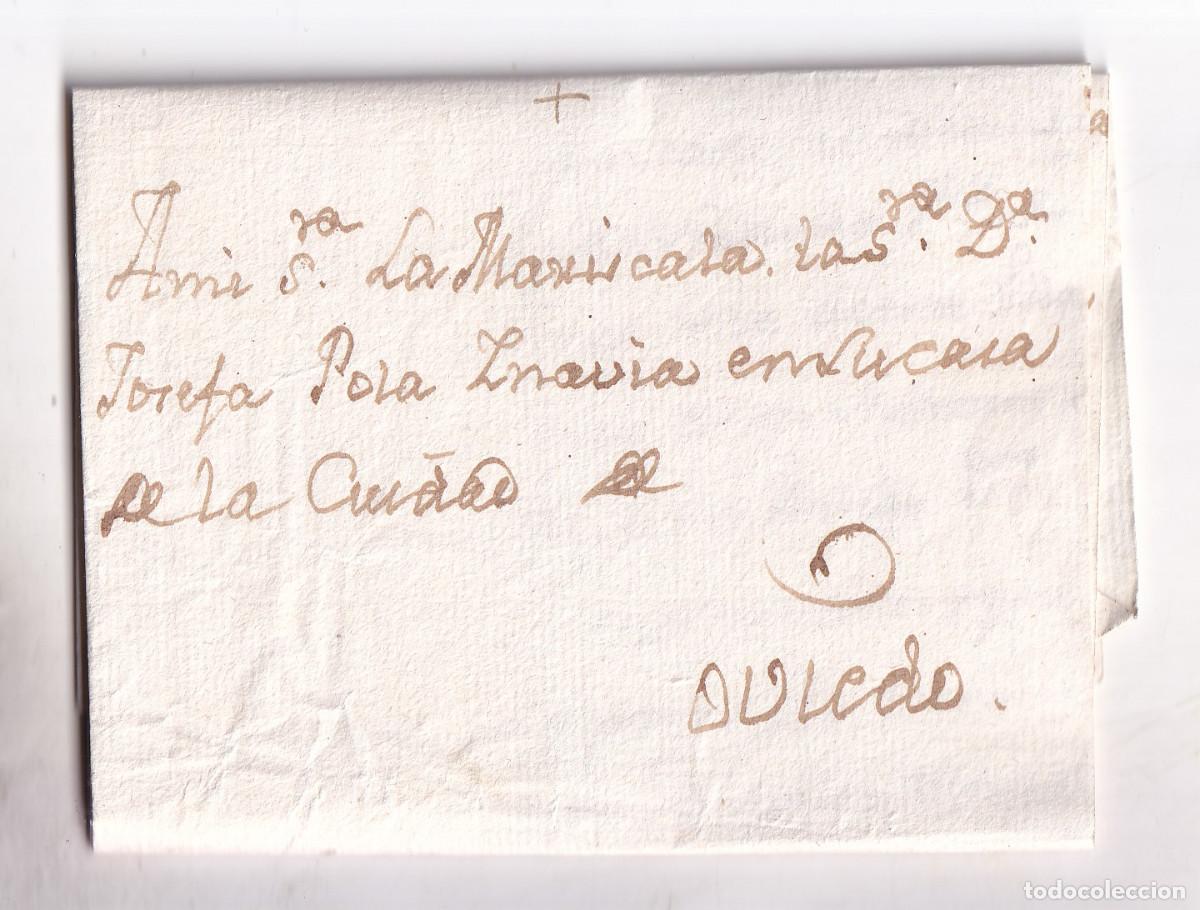 +
Ami S.ra La Mariscala. la S.ra D.a
Josefa Pola Inavia en su casa
de la Ciudad de
Oviedo.
todocoleccion